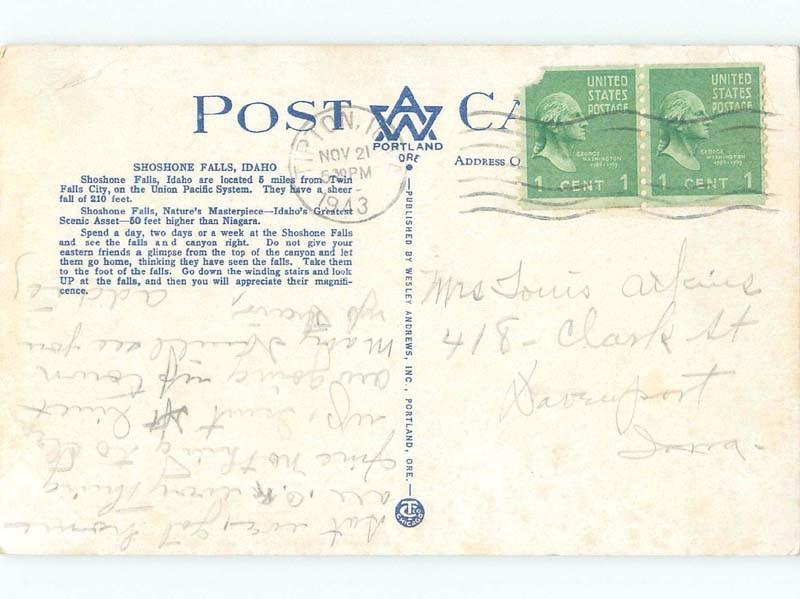 POST CA
PORTLAND
ORE
TIPTON, I
NOV 21
5 30 PM
1943
UNITED
STATES
POSTAGE
GEORGE
WASHINGTON
1 CENT 1
UNITED
STATES
POSTAGE
GEORGE
WASHINGTON
1 CENT 1
ADDRESS O
SHOSHONE FALLS, IDAHO
Shoshone Falls, Idaho are located 5 miles from Twin
Falls City, on the Union Pacific System. They have a sheer
fall of 210 feet.
Shoshone Falls, Nature's Masterpiece—Idaho's Greatest
Scenic Asset—50 feet higher than Niagara.
Spend a day, two days or a week at the Shoshone Falls
and see the falls and canyon right. Do not give your
eastern friends a glimpse from the top of the canyon and let
them go home, thinking they have seen the falls. Take them
to the foot of the falls. Go down the winding stairs and look
UP at the falls, and then you will appreciate their magnifi-
cence.
—PUBLISHED BY WESLEY ANDREWS, INC., PORTLAND, ORE.—
CHICAGO
Mrs Louis Atkins
418 - Clark St
Davenport
Iowa -
Sat eve, got home
all O.K everything
fine nothing to
up,
are going up town
see you